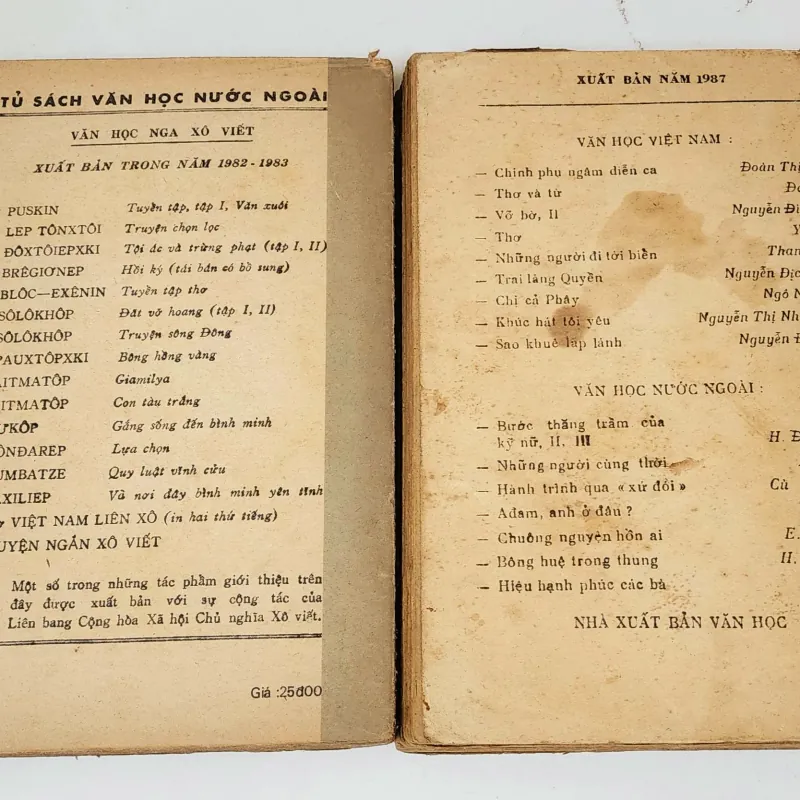 TỦ SÁCH VĂN HỌC NƯỚC NGOÀI
VĂN HỌC NGA XÔ VIẾT
XUẤT BẢN TRONG NĂM 1982 - 1983
PUSKIN Tuyển tập, tập I, Văn xuôi
LEP TÔNXTÔI Truyện chọn lọc
ĐÔXTÔIEPXKI Tội ác và trừng phạt (tập I, II)
BRÊGIƠNEP Hồi ký (tái bản có bổ sung)
BLÔC—EXÊNIN Tuyển tập thơ
SÔLÔKHÔP Đất vỡ hoang (tập I, II)
SÔLÔKHÔP Truyện sông Đông
PAUXTÔPXKI Bông hồng vàng
ITMATÔP Giamilya
ITMATÔP Con tàu trắng
KÔP Gắng sống đến bình minh
ÔNĐAREP Lựa chọn
UMBATZE Quy luật vĩnh cửu
XILIEP Và nơi đây bình minh yên tĩnh
VIỆT NAM LIÊN XÔ (in hai thứ tiếng)
UYỆN NGẮN XÔ VIẾT
Một số trong những tác phẩm giới thiệu trên
đây được xuất bản với sự cộng tác của
Liên bang Cộng hòa Xã hội Chủ nghĩa Xô viết.
Giá :25đ00
XUẤT BẢN NĂM 1987
VĂN HỌC VIỆT NAM :
— Chinh phụ ngâm diễn ca Đoàn Thị
— Thơ và từ
— Vỡ bờ, II Nguyễn Đì
— Thơ
— Những người đi tới biển Than
— Trai làng Quyền Nguyễn Địc
— Chị cả Phây Ngô N
— Khúc hát tôi yêu Nguyễn Thị Nh
— Sao khuê lấp lánh Nguyễn Đ
VĂN HỌC NƯỚC NGOÀI :
— Bước thăng trầm của
kỹ nữ, II, III H. Đ
— Những người cùng thời
— Hành trình qua « xứ đói » Cù
— Ađam, anh ở đâu ?
— Chuông nguyện hồn ai E.
— Bông huệ trong thung H.
— Hiệu hạnh phúc các bà
NHÀ XUẤT BẢN VĂN HỌC